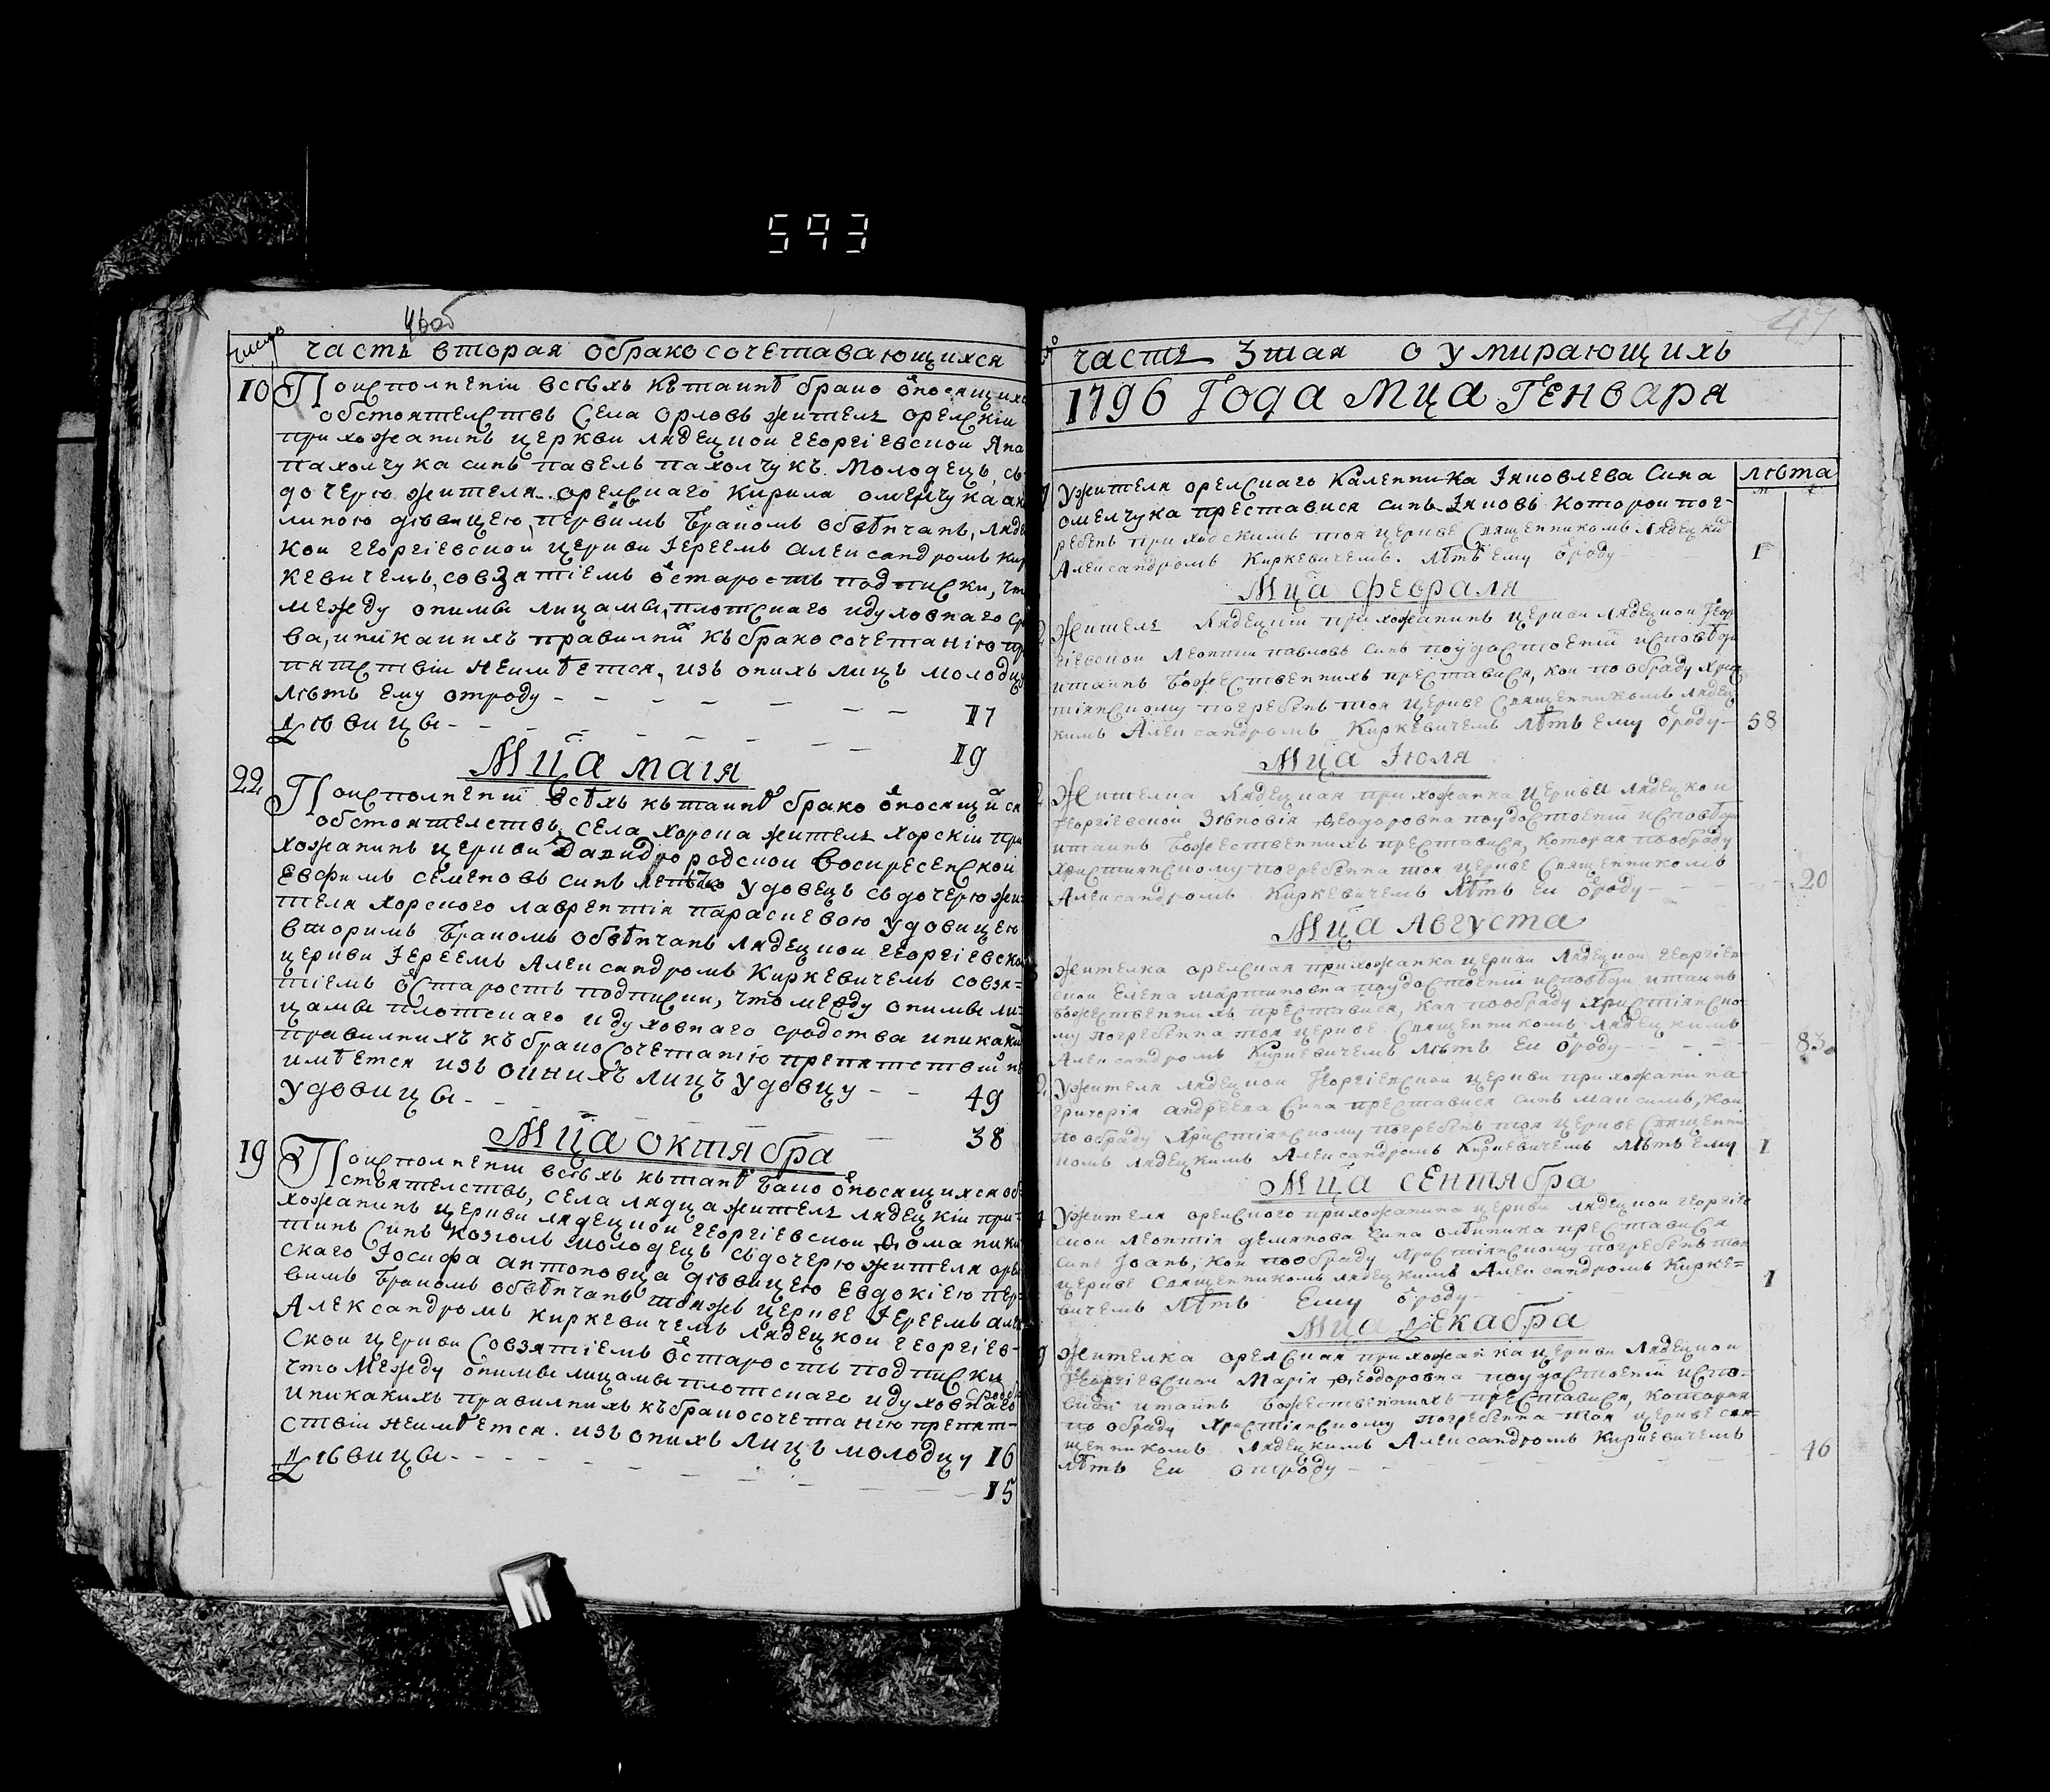 593
число
часть вторая обракосочетавающихся
10 Поисполненіи всѣхъ къ таинѣ брако
обстоятелствъ Села Орловъ жителъ орелскіи
прихожанинъ церкви лядецкои георгіевскои
пахолчука синъ павелъ пахолчукъ молодецъ, съ
дочерю жителя орелскаго Кирила омелчука
линою дѣвицею, первимъ бракомъ обвѣнчанъ,
кои георгіевскои церкви Іереемъ Александромъ
кевичемъ, совзятіемъ ѿ старость подписки,
между онимы лицамы, плотскаго идуховнаго
ва, иникакихъ правилнихъ къ бракосочетанію
пятствіи неимѣется, изъ онихъ лицъ молодцу
лѣтъ ему отроду 17
Дѣвицы 19
Мца маія
22 Поисполненіи всѣхъ къ таинѣ брако
обстоятелствъ, села хорска жителъ хорскіи
хожанинъ церкви Давидгородскои воскресенской
евфимъ семеновъ синъ удовецъ съ дочерю
теля хорского лаврентія парасковею удовицею
вторимъ бракомъ обвѣнчанъ лядецкои георгіевской
церкви Іереемъ Александромъ Киркевичемъ совзя=
тіемъ ѿ старость подписки, что между онимы ли=
цамы плотскаго и духовнаго сродства иникакихъ
правилнихъ къ бракосочетанію препятствіи не
имѣется изъ онихъ лицъ удовцу 49
удовицы 38
Мца октября
19 Поисполненіи всѣхъ къ таинѣ
стоятелствъ, села лядца жителъ лядецкіи при=
хожанинъ церкви лядецкои георгіевскои Ѳома
тинъ Синъ козголъ молодецъ съ дочерю жителя
скаго Іосифа антоновца дѣвицею Евдокіею пер=
вимъ бракомъ обвѣнчанъ тояжъ церкве Іереемъ
Александромъ киркевичемъ лядецкои георгіев=
скои церкви совзятіемъ ѿ старость подписки
что между онимы лицамы плотскаго идуховнаго
иникакихъ правилнихъ къ бракосочетанію препят=
ствіи неимѣется. изъ онихъ лицъ молодцу 16
Дѣвицы 15
47
часть 3тая о умирающихъ
1796 Года Мца Генваря
лѣта
Ужителя орелскаго Каленника Іяковлева Сина
омелчука преставися синъ Іяковъ которои пог=
ребенъ приходскимъ тоя церкве Священникомъ лядецким
Александромъ Киркевичемъ. лѣтъ ему ѿроду 1
Мца февраля
Жителъ лядецкіи прихожанинъ церкви лядецкои Геор
гіевскои леонтіи павловъ синъ поудостоеніи исповѣди
итаинъ божественнихъ преставися, кои по обряду хрис
тіянскому погребенъ тоя церкве Священникомъ лядец
кимъ Александромъ Киркевичемъ лѣтъ ему ѿроду 58
Мца Іюля
Жителка лядецкая прихожанка церкви лядецкои
Георгіевскои Зѣновія Ѳеодоровна поудостоеніи исповѣди
итаинъ божественнихъ преставися, которая пообряду
христіянскому погребенна тоя церкве Священникомъ
Александромъ Киркевичемъ лѣтъ еи ѿроду 20
Мца Августа
жителка орелская прихожанка церкви лядецкои георгіев
скои елена мартиновна поудостоеніи исповѣди итаинъ
божественнихъ преставися, кая пообряду христіянско
му погребенна тоя церкве Священникомъ лядецкимъ
Александромъ Киркевичемъ лѣтъ еи ѿроду 83
Ужителя лядецкои Георгіевскои церкви прихожанина
григорія андреева Сина преставися синъ максимъ, кои
по обряду Христіянскому погребенъ тоя церкве Священни
комъ лядецкимъ Александромъ Киркевичемъ лѣтъ ему 1
Мца сентября
Ужителя орелского прихожанина церкви лядецкои георгіев
скои леонтія демянова Сина преставися
синъ Іоанъ, кои пообряду христіянскому погребенъ тоя
церкве Священникомъ лядецкимъ Александромъ Кирке=
вичемъ лѣтъ ему ѿроду 1
Мца декабра
жителка орелская прихожанка церкви лядецкои
Георгіевскои марія Ѳеодоровна поудостоеніи испо=
види итаинъ божественнихъ преставися, которая
по обряду христіянскому погребенна тоя церкве свя=
щенникомъ лядецкимъ Александромъ Киркевичемъ
лѣтъ еи отроду 46